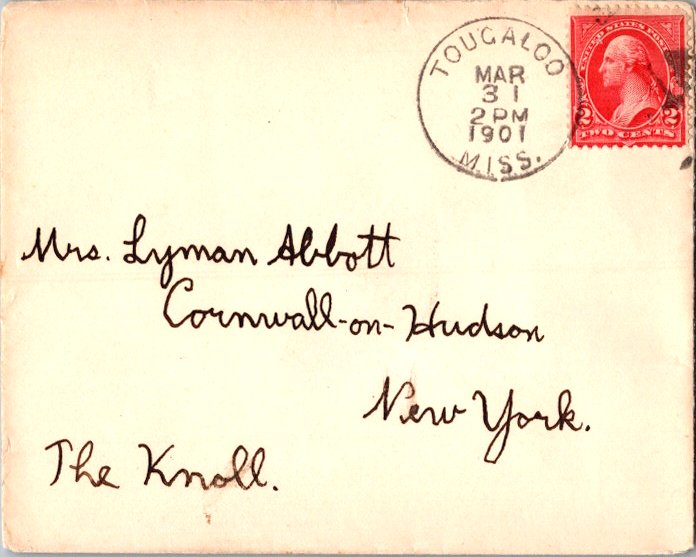 TOUGALOO
MAR
31
2 PM
1901
MISS.
UNITED STATES POST
2 2
TWO CENTS
Mrs. Lyman Abbott
Cornwall-on-Hudson
New York.
The Knoll.